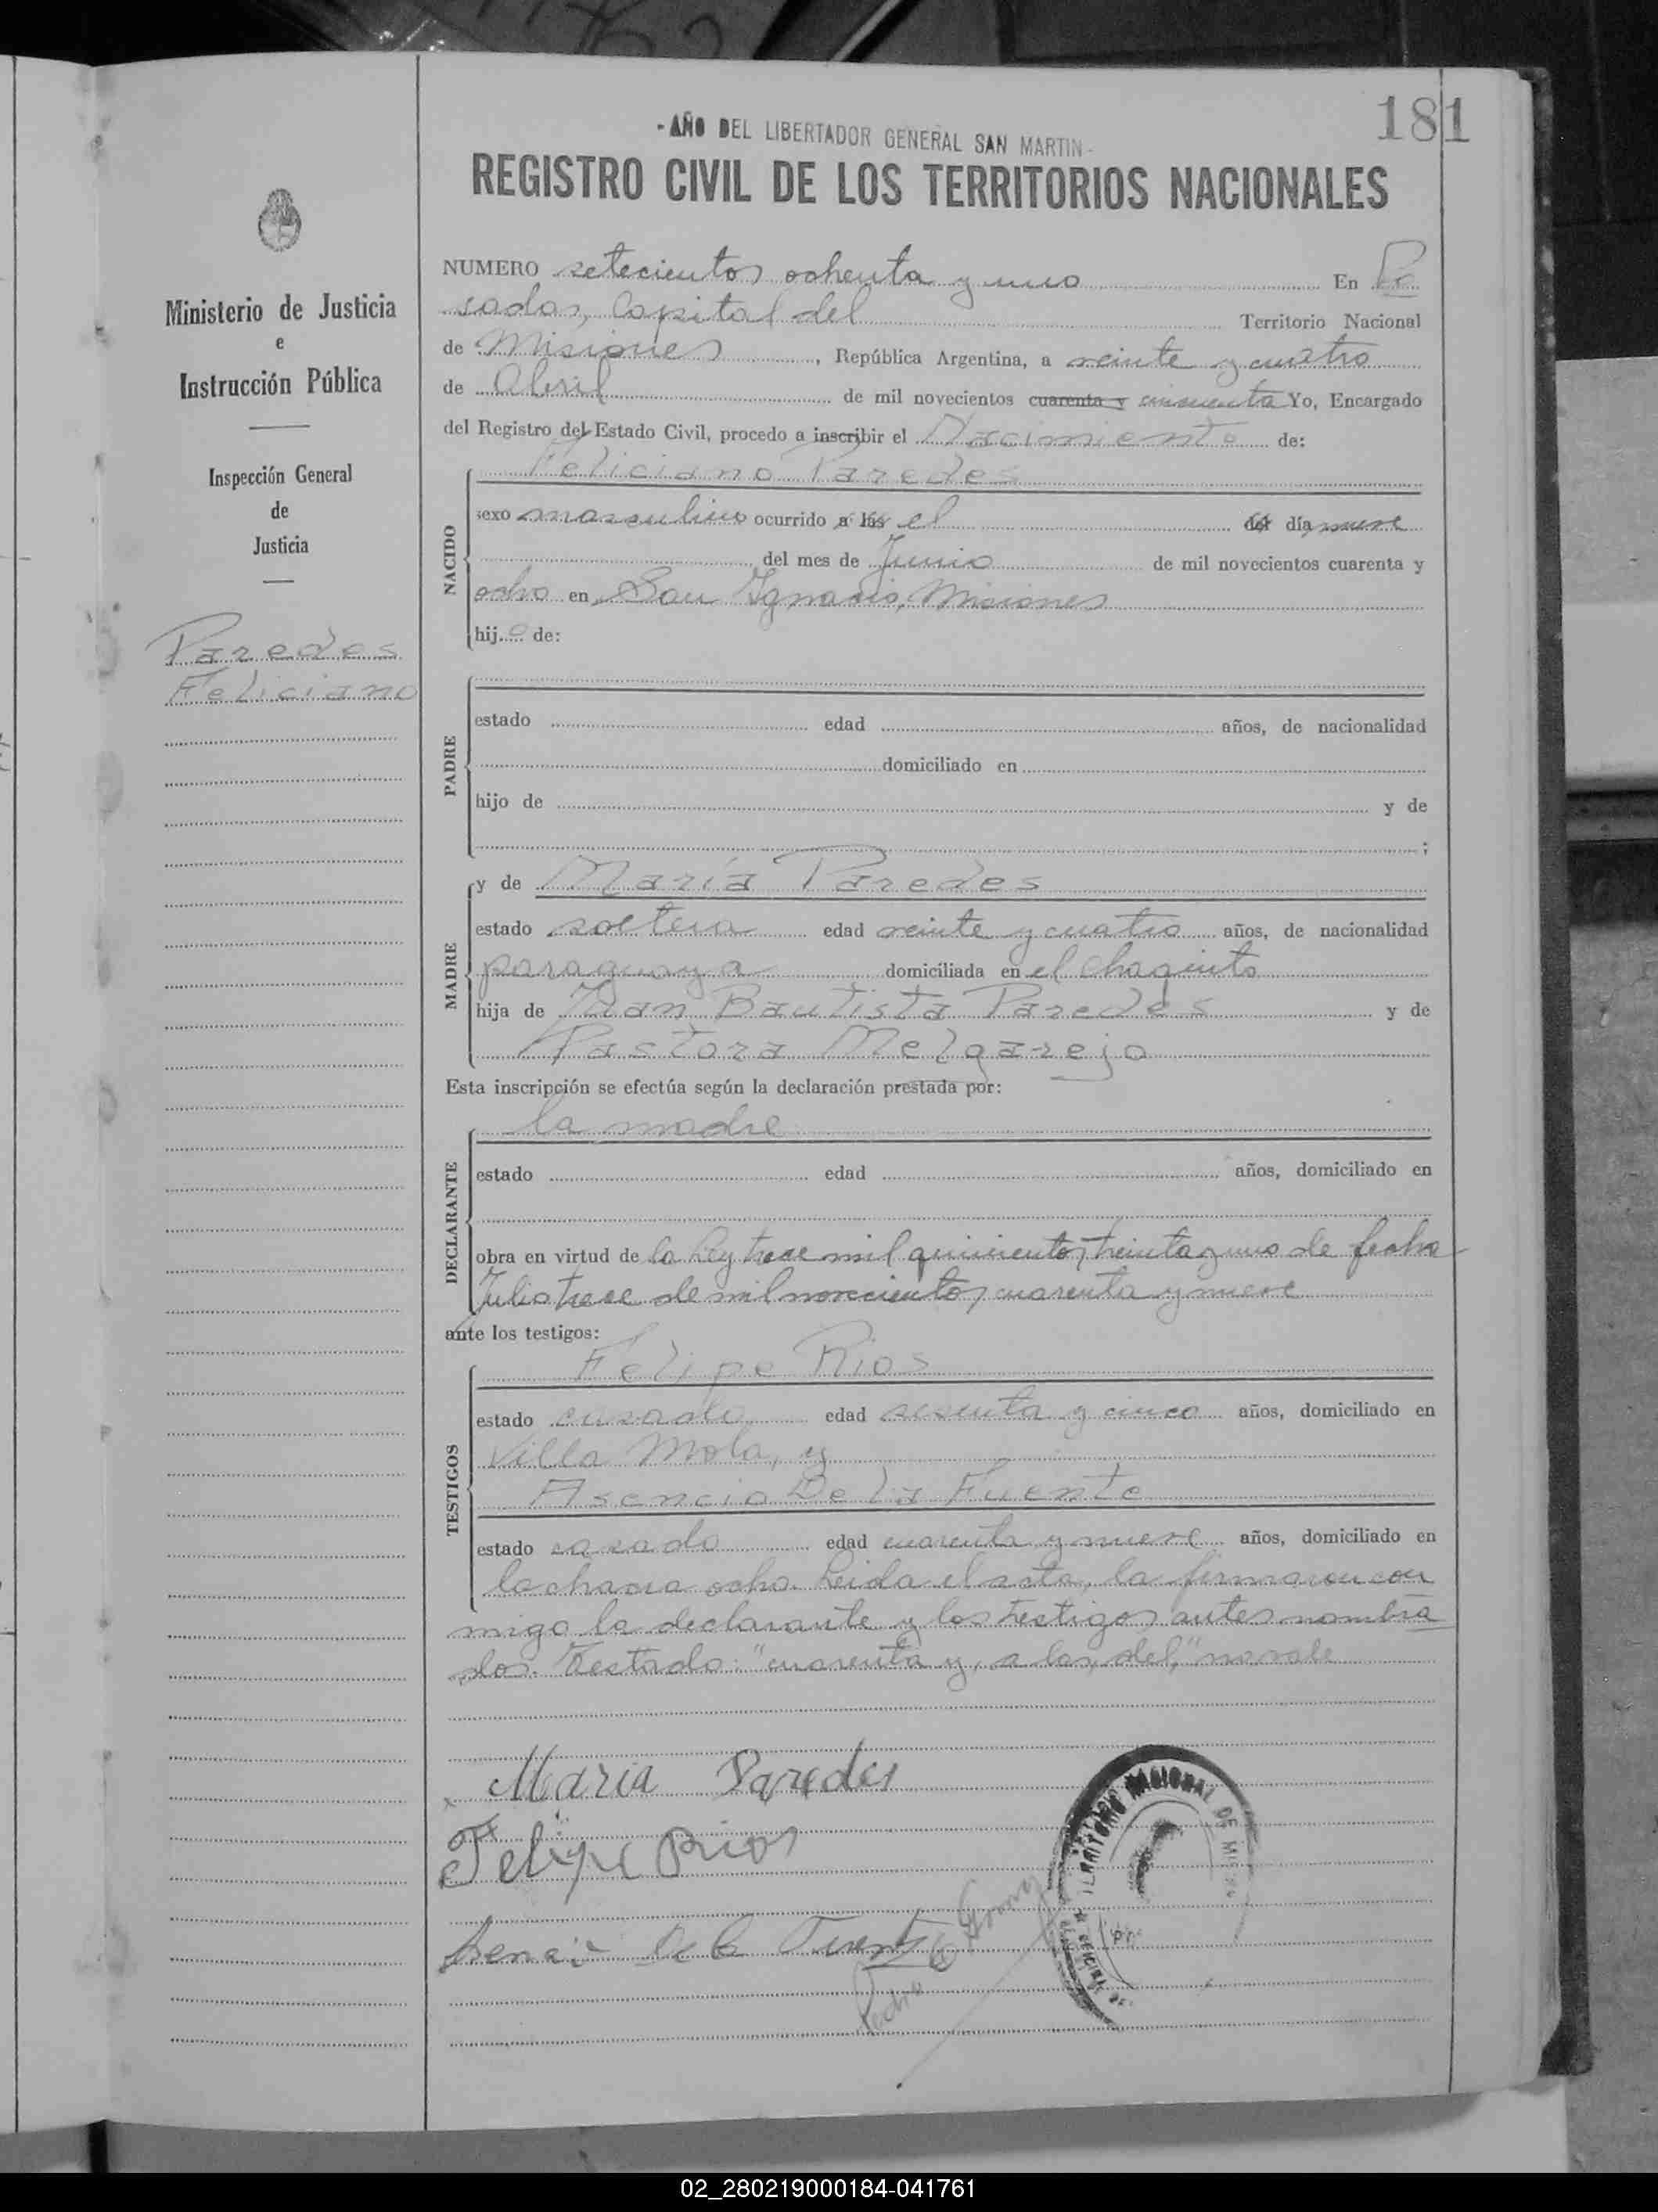 181
- AÑO DEL LIBERTADOR GENERAL SAN MARTIN -
REGISTRO CIVIL DE LOS TERRITORIOS NACIONALES
Ministerio de Justicia
e
Instrucción Pública
Inspección General
de
Justicia
Paredes
Feliciano
NUMERO setecientos ochenta y uno En Po
sadas, Capital del Territorio Nacional
de Misiones, República Argentina, a veinte y cuatro
de Abril de mil novecientos cuarenta y cincuenta Yo, Encargado
del Registro del Estado Civil, procedo a inscribir el Nacimiento de:
NACIDO
Feliciano Paredes
sexo masculino ocurrido a las el del día nueve
del mes de Junio de mil novecientos cuarenta y
ocho en San Ignacio, Misiones
hijo de:
PADRE
estado edad años, de nacionalidad
domiciliado en
hijo de y de
;
MADRE
y de María Paredes
estado soltera edad veinte y cuatro años, de nacionalidad
paraguaya domiciliada en el Chaquito
hija de Juan Bautista Paredes y de
Pastora Melgarejo
Esta inscripción se efectúa según la declaración prestada por:
DECLARANTE
la madre
estado edad años, domiciliado en
obra en virtud de la Ley trece mil quinientos treinta y uno de fecha
Julio trece de mil novecientos cuarenta y nueve
ante los testigos:
TESTIGOS
Felipe Rios
estado casado edad sesenta y cinco años, domiciliado en
Villa Mola, y
Asencio De la Fuente
estado casado edad cuarenta y nueve años, domiciliado en
la chacra ocho. Leida el acta, la firmaron con
migo la declarante y los testigos antes nombra
dos. Testado: "cuarenta y, a las, del," no vale
Maria Paredes
Felipe Rios
Asencio De la Fuente
Pedro Gomez
TERRITORIO NACIONAL DE MISIONES
02_280219000184-041761